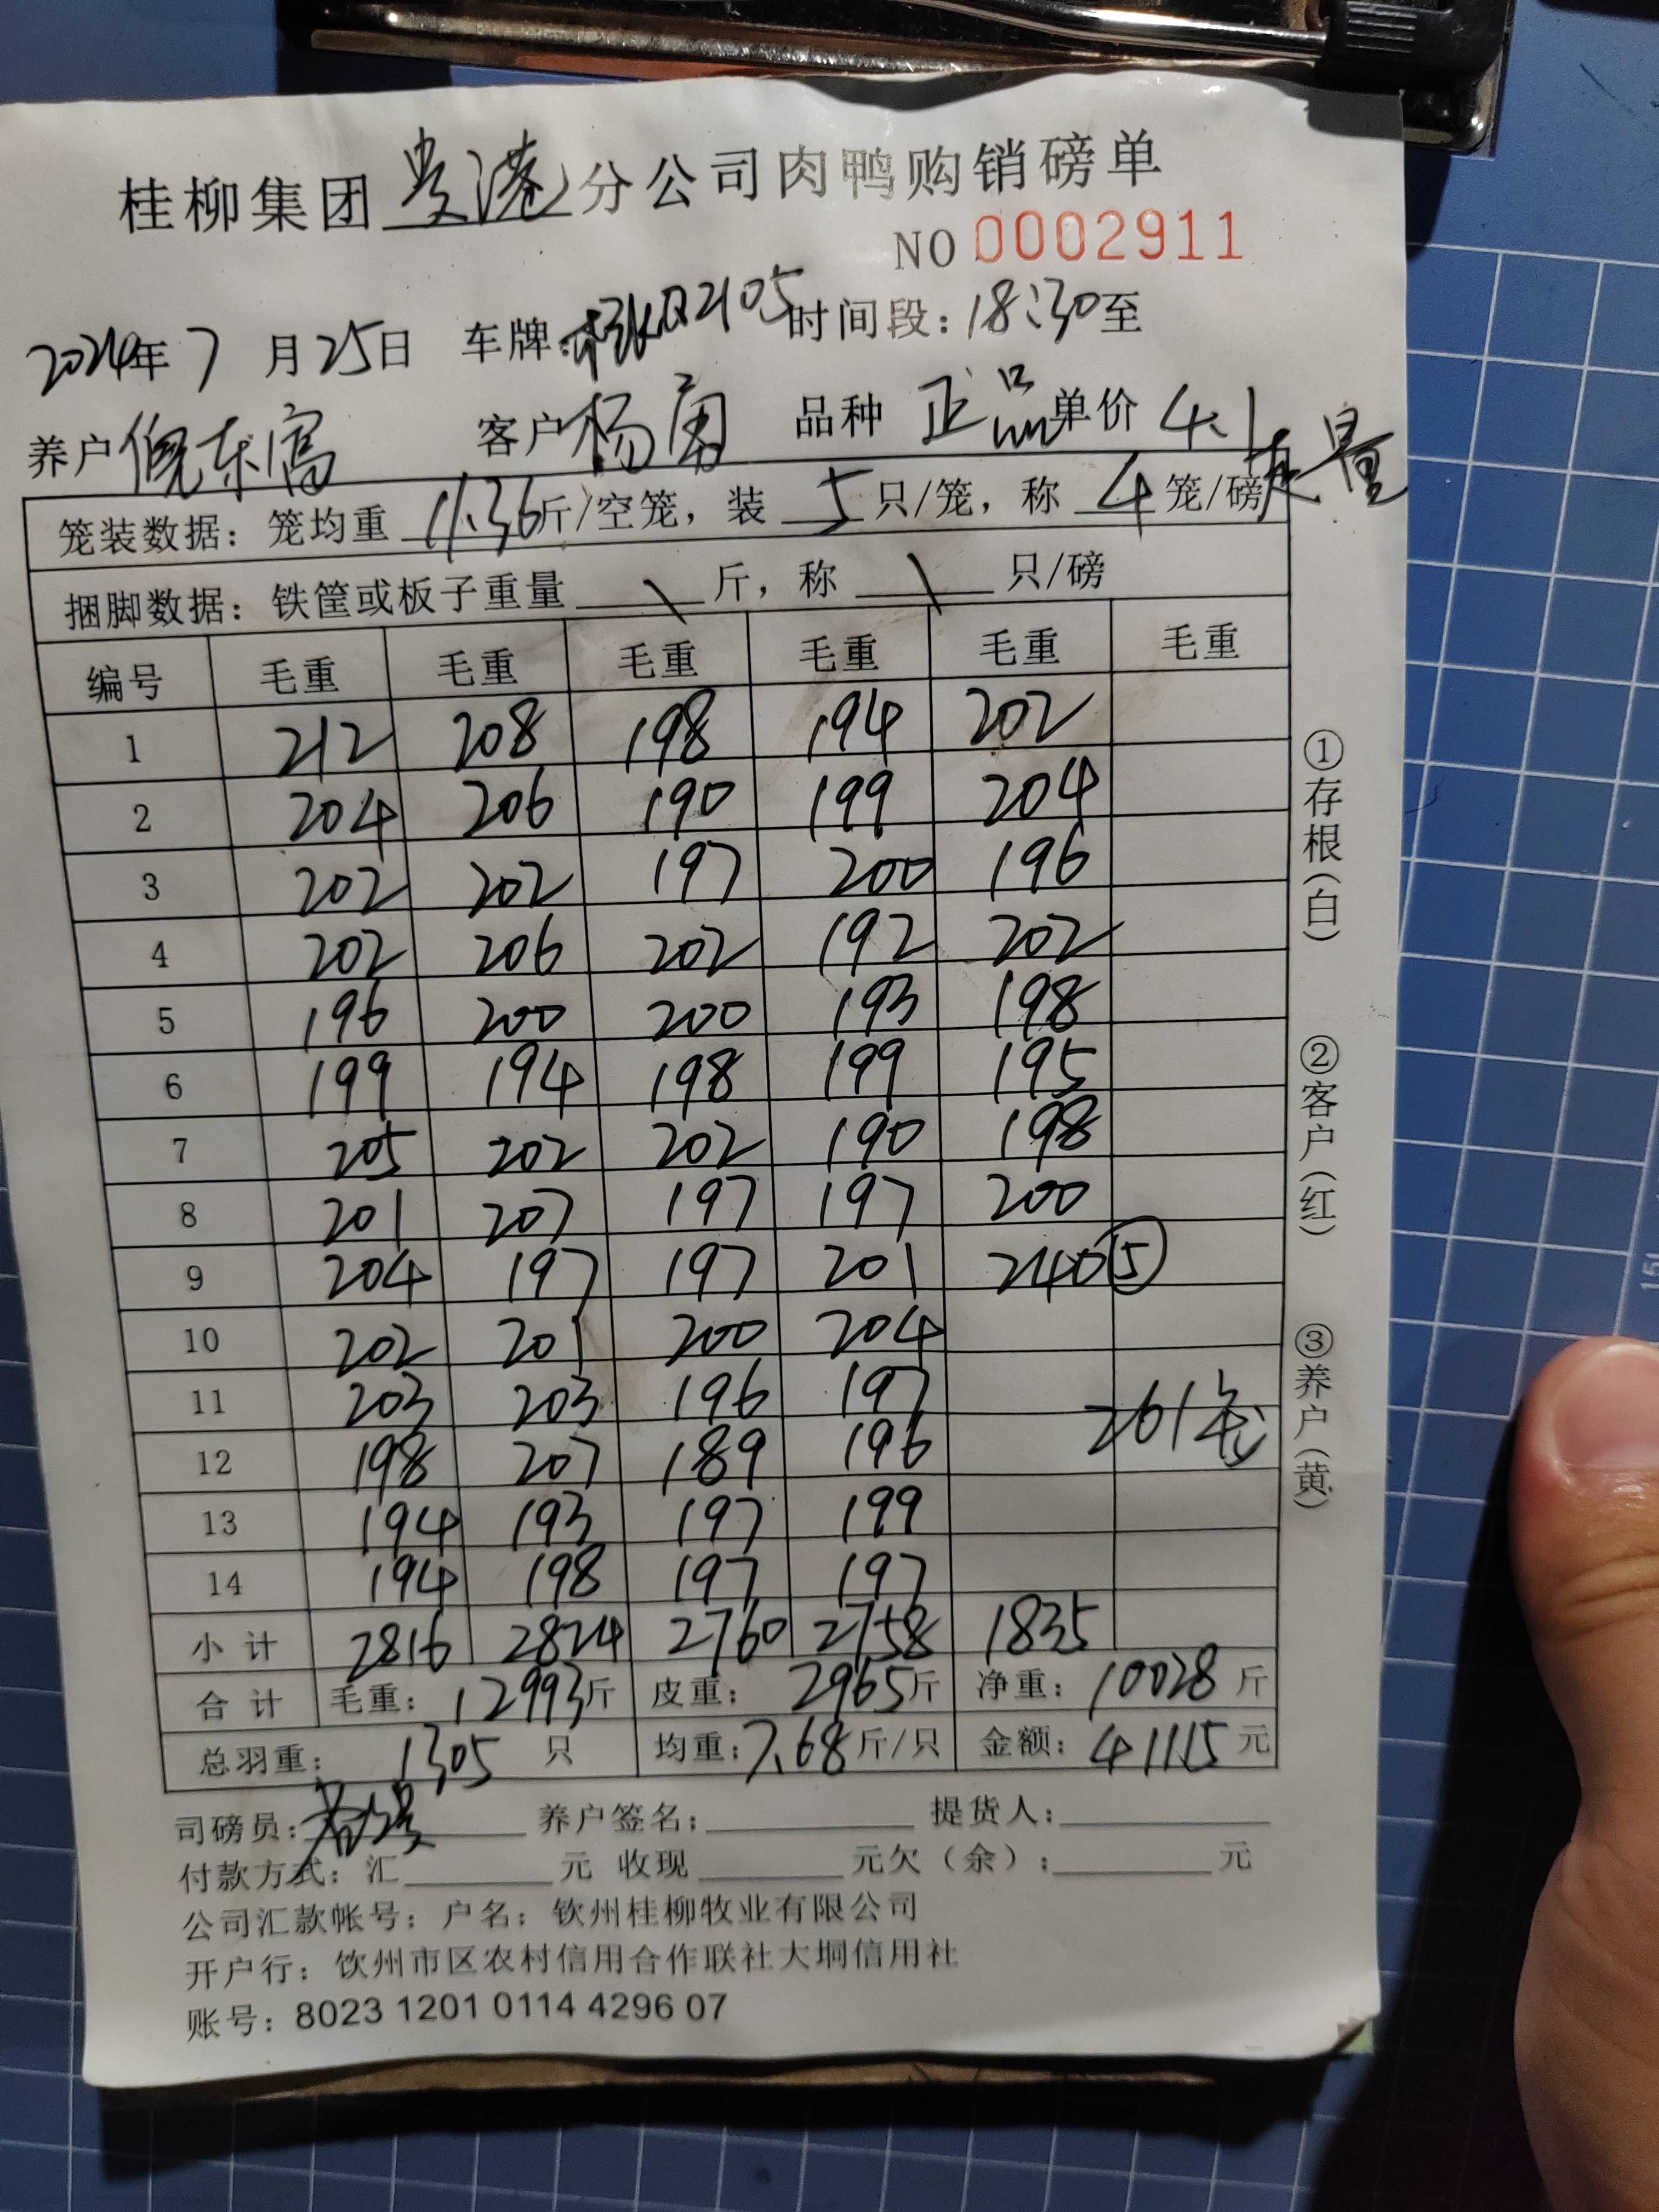 桂柳集团贵港分公司肉鸭购销磅单
NO 0002911
2024年7月25日 车牌: 2105 时间段:18:30至
养户 倪东富 客户 杨勇 品种 正品 单价 4.1
走量
笼装数据:笼均重 11.36斤/空笼,装 5 只/笼,称 4 笼/磅
捆脚数据:铁筐或板子重量 \ 斤,称 \ 只/磅
编号 毛重 毛重 毛重 毛重 毛重 毛重
1 212 208 198 194 202
2 204 206 190 199 204
3 202 202 197 200 196
4 202 206 202 192 202
5 196 200 200 193 198
6 199 194 198 199 195
7 205 202 202 190 198
8 201 207 197 197 200
9 204 197 197 201 240⑤
10 202 201 200 204
11 203 203 196 197
261笼
12 198 207 189 196
13 194 193 197 199
14 194 198 197 197
小计 2816 2824 2760 2758 1835
合计 毛重:12993斤 皮重:2965斤 净重:10028斤
总羽重:1305 只 均重:7.68斤/只 金额:41115元
司磅员: 养户签名: 提货人:
付款方式:汇 元 收现 元欠(余): 元
公司汇款帐号:户名:钦州桂柳牧业有限公司
开户行:饮州市区农村信用合作联社大垌信用社
账号:8023 1201 0114 4296 07
①存根(白)
②客户(红)
③养户(黄)